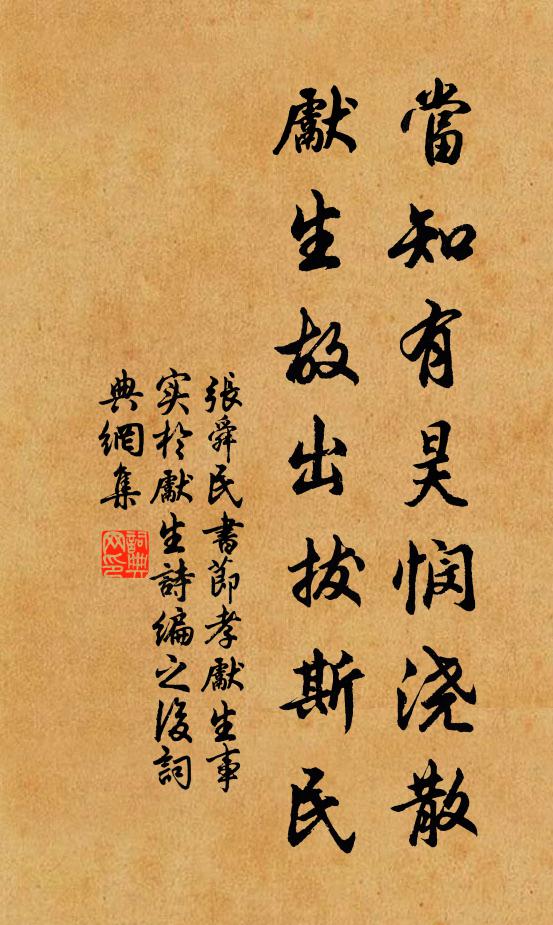 當知有昊悯浇散
獻生故出拔斯民
張舜民書節孝獻生事
实於獻生詩編之後詞
典網集
詞典
网印